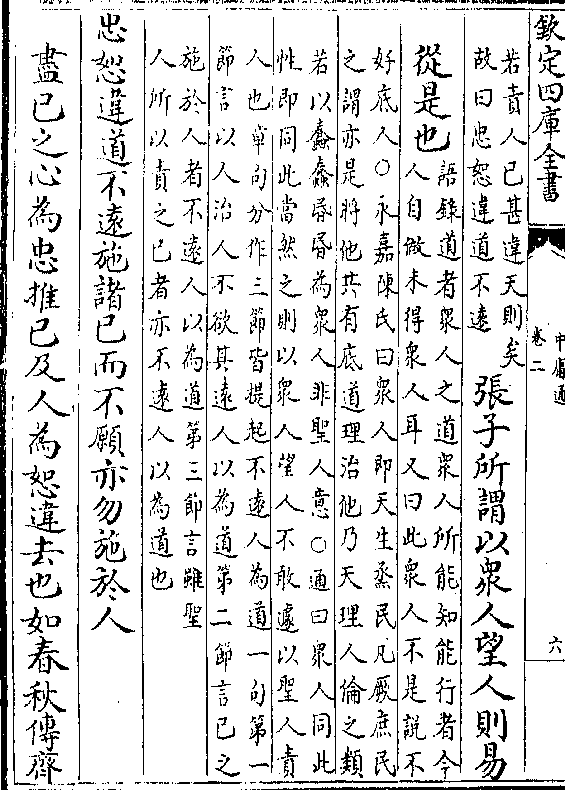 欽定四庫全書
中庸通
卷二
六
若責人已甚違天則矣
故曰忠恕違道不遠
張子所謂以衆人望人則易
從是也
語錄道者衆人之道衆人所能知能行者今
人自做未得衆人耳又曰此衆人不是說不
好底人○永嘉陳氏曰衆人即天生烝民凡厥庶民
之謂亦是將他共有底道理治他乃天理人倫之類
若以蠢蠢昏昏為衆人非聖人意○通曰衆人同此
性即同此當然之則以衆人望人不敢遽以聖人責
人也章句分作三節皆提起不遠人為道一句第一
節言以人治人不欲其遠人以為道第二節言己之
施於人者不遠人以為道第三節言雖聖
人所以責之己者亦不遠人以為道也
忠恕違道不遠施諸己而不願亦勿施於人
盡己之心為忠推己及人為恕違去也如春秋傳齊